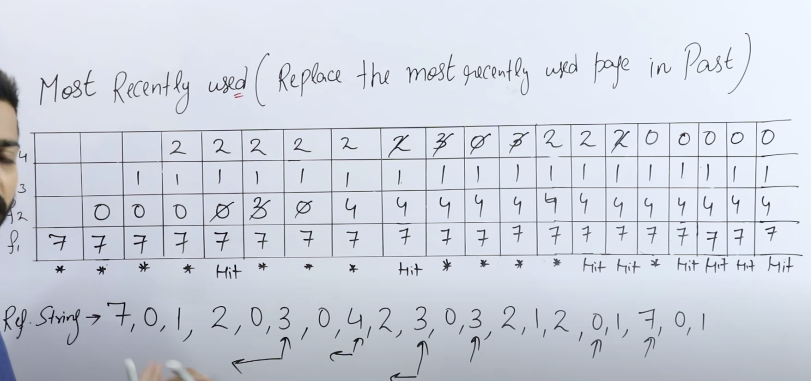 Most Recently used (Replace the most recently used page in Past)
4 2 2 2 2 2 2 3 0 3 2 2 2 0 0 0 0 0
3 1 1 1 1 1 1 1 1 1 1 1 1 1 1 1 1 1 1
f2 0 0 0 0 3 0 4 4 4 4 4 4 4 4 4 4 4 4 4
f1 7 7 7 7 7 7 7 7 7 7 7 7 7 7 7 7 7 7 7 7
* * * * Hit * * * Hit * * * * Hit Hit * Hit Hit Hit Hit
Ref. String → 7, 0, 1, 2, 0, 3, 0, 4, 2, 3, 0, 3, 2, 1, 2, 0, 1, 7, 0, 1